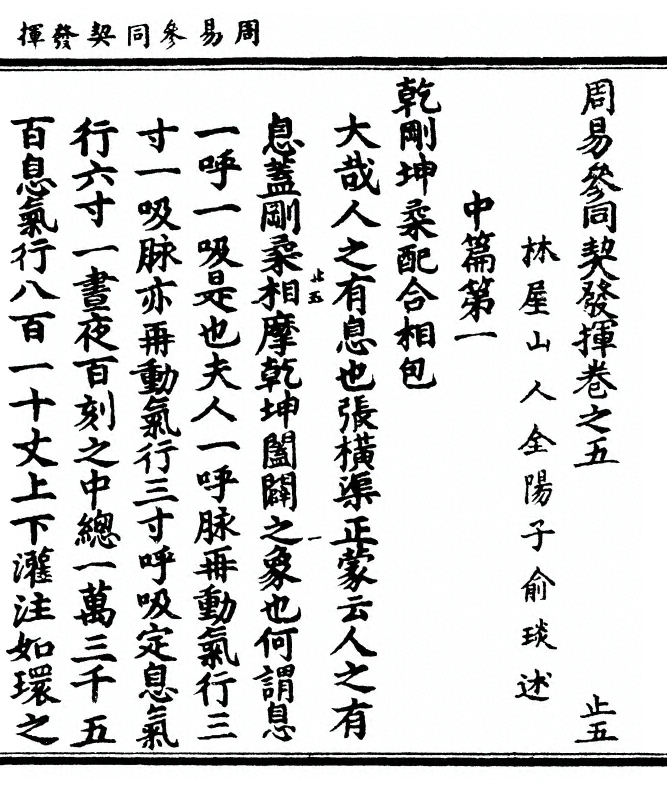 周易參同契發揮
周易參同契發揮卷之五 止五
林屋山人全陽子俞琰述
中篇第一
乾剛坤柔配合相包
大哉人之有息也張橫渠正蒙云人之有
息蓋剛柔相摩乾坤闔闢之象也何謂息
止五
一
一呼一吸是也夫人一呼脉再動氣行三
寸一吸脉亦再動氣行三寸呼吸定息氣
行六寸一晝夜百刻之中總一萬三千五
百息氣行八百一十丈上下灌注如環之